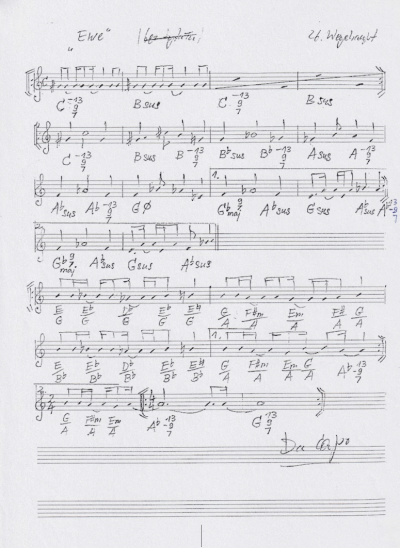 "Ewe" H. Wegelnight
C -13 9 7 Bsus C -13 9 7 Bsus
C -13 9 7 Bsus B -13 9 7 B♭sus B♭ -13 9 7 Asus A -13 9 7
A♭sus A♭ -13 9 7 GØ 1. G♭ 9 7 maj A♭sus Gsus A♭sus A -13 9 7
2. G♭ 9 7 maj A♭sus Gsus A♭sus
E/G E♭/G D♭/G E♭/G E♮/G G/A F#m/A Em/A F#/A G/A
E/B♭ E♭/B♭ D♭/B♭ E♭/B♭ E♮/B♭ 1. G/A F#m/A Em/A G/A A♭ -13 9 7
2. 2/4 G/A F#m/A Em/A A♭ -13 9 7 G -13 9 7
Da Capo